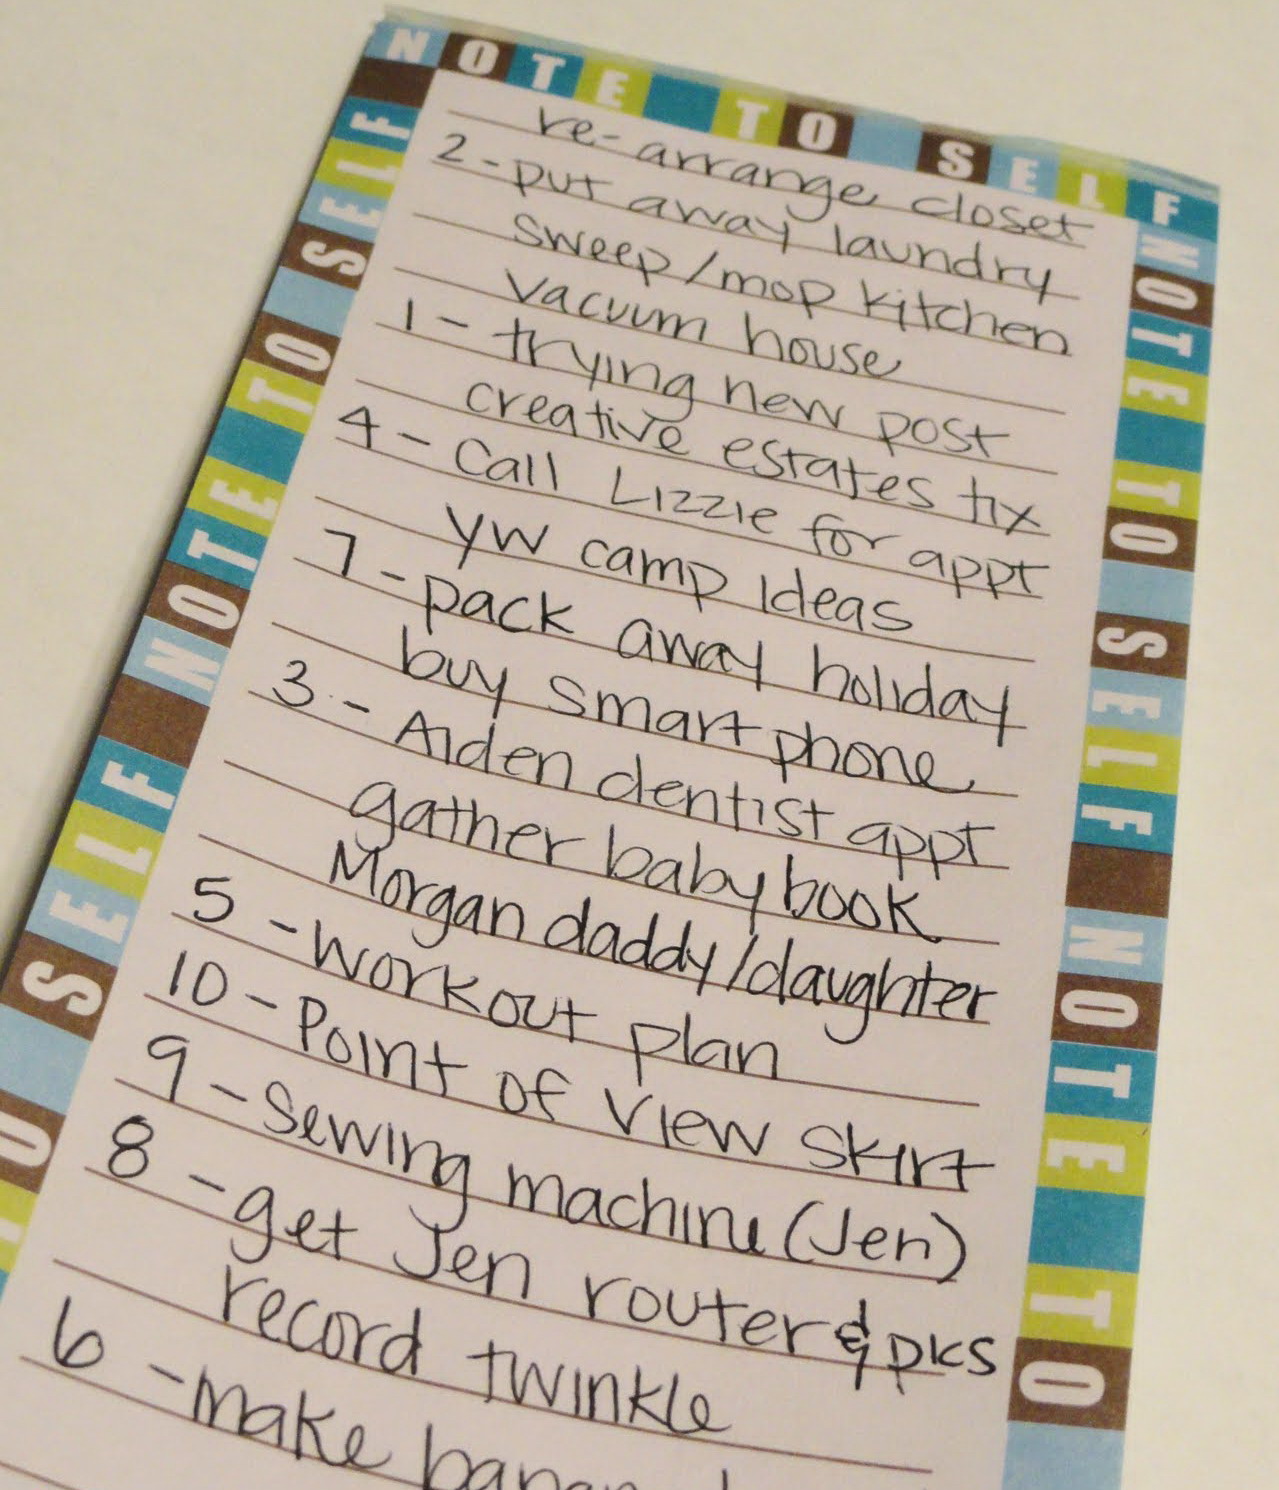 NOTE TO SELF
re-arrange closet
2 - put away laundry
sweep/mop kitchen
vacuum house
1 - trying new post
creative estates tix
4 - Call Lizzie for appt
yw camp Ideas
7 - pack away holiday
buy smart phone
3 - Aiden dentist appt
gather baby book
Morgan daddy/daughter
5 - workout plan
10 - Point of View skirt
9 - Sewing machine (Jen)
8 - get Jen router & pks
record twinkle
6 - make
NOTE TO SELF NOTE TO
SELF NOTE TO SELF